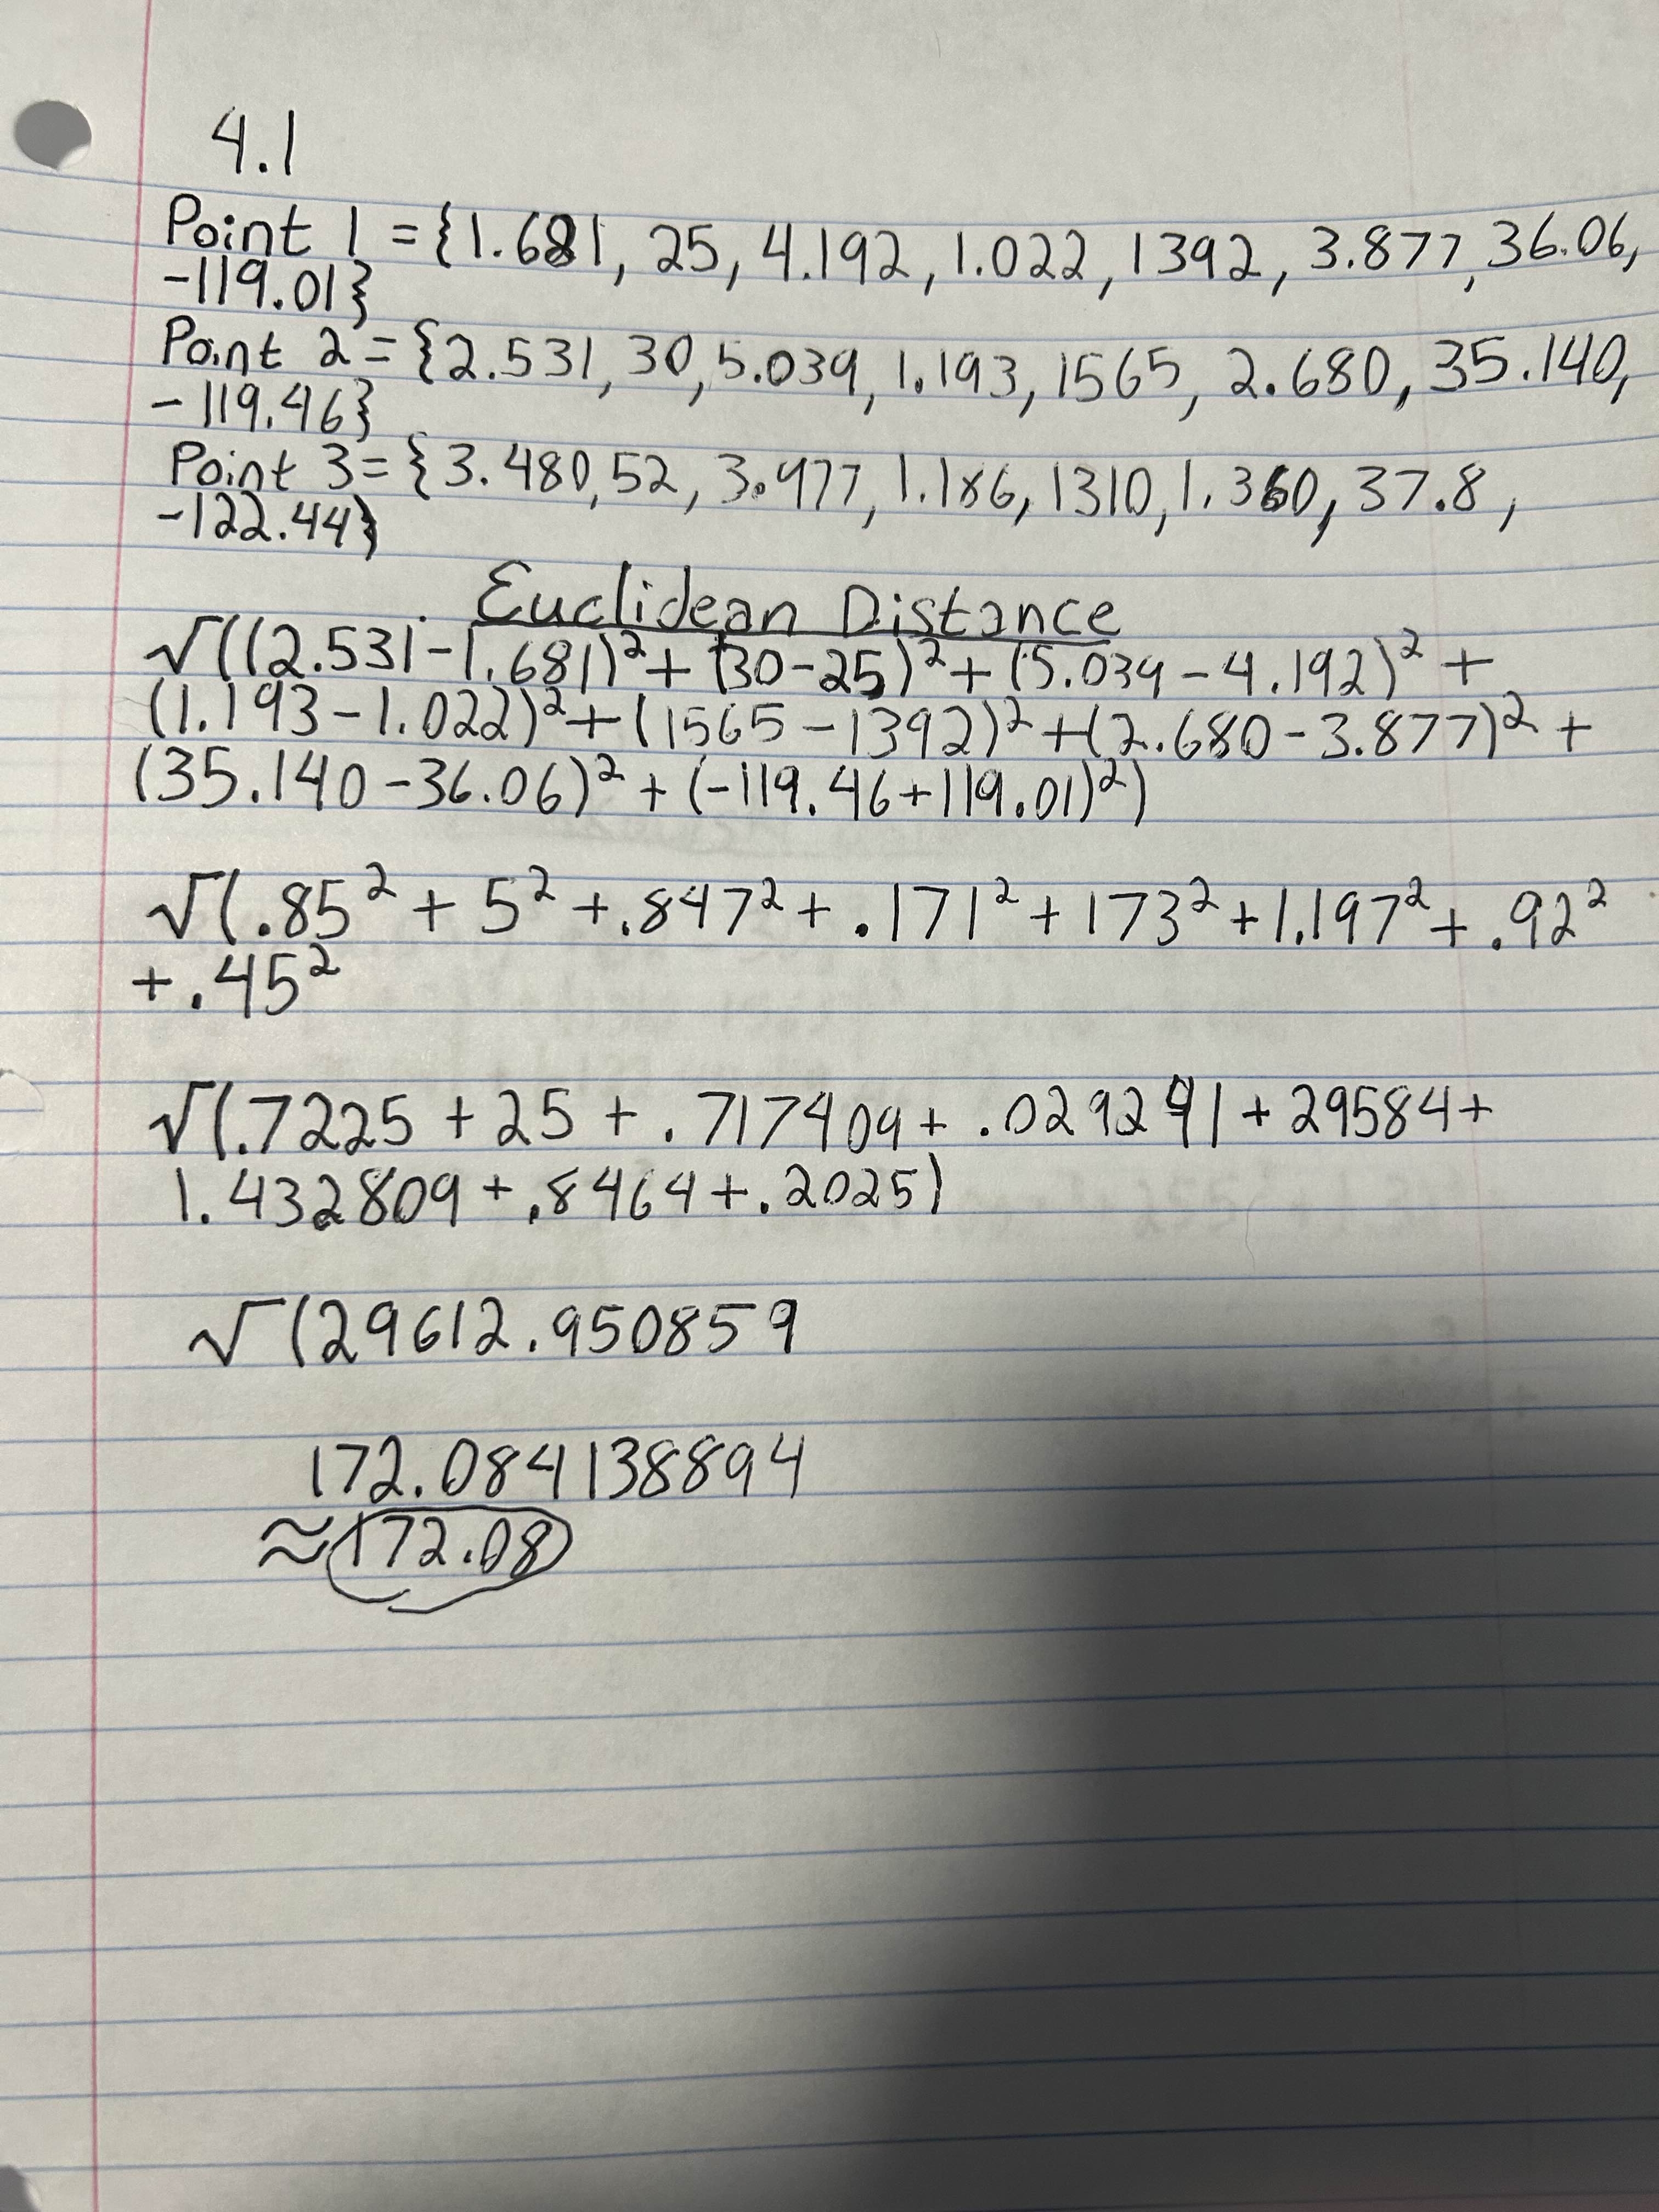 4.1
Point 1 = {1.681, 25, 4.192, 1.022, 1392, 3.877, 36.06,
-119.01}
Point 2 = {2.531, 30, 5.039, 1.193, 1565, 2.680, 35.140,
-119.46}
Point 3 = {3.480, 52, 3.977, 1.186, 1310, 1.360, 37.8,
-122.44}
Euclidean Distance
√((2.531-1.681)² + (30-25)² + (5.039-4.192)² +
(1.193-1.022)² + (1565-1392)² + (2.680-3.877)² +
(35.140-36.06)² + (-119.46+119.01)²)
√(.85² + 5² + .847² + .171² + 173² + 1.197² + .92²
+ .45²
√(.7225 + 25 + .717409 + .029241 + 29584 +
1.432809 + .8464 + .2025)
√(29612.950859
172.084138894
≈ 172.08